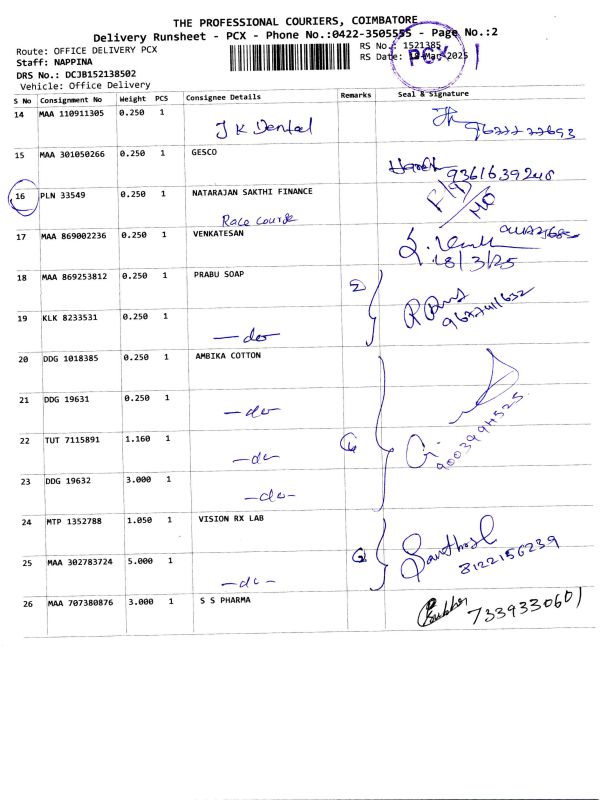 THE PROFESSIONAL COURIERS, COIMBATORE
Delivery Runsheet - PCX - Phone No.:0422-3505555 - Page No.:2
Route: OFFICE DELIVERY PCX
RS No.: 1521385
Staff: NAPPINA
RS Date: 18-Mar-2025
PCX
DRS No.: DCJB152138502
Vehicle: Office Delivery
S No Consignment No Weight PCS Consignee Details Remarks Seal & Signature
14 MAA 110911305 0.250 1 J K Dental
15 MAA 301050266 0.250 1 GESCO
9361639240
16 PLN 33549 0.250 1 NATARAJAN SAKTHI FINANCE
Race course
17 MAA 869002236 0.250 1 VENKATESAN
18/3/25
18 MAA 869253812 0.250 1 PRABU SOAP
19 KLK 8233531 0.250 1 —do
20 DDG 1018385 0.250 1 AMBIKA COTTON
21 DDG 19631 0.250 1 —do
22 TUT 7115891 1.160 1 —do
23 DDG 19632 3.000 1 —do-
24 MTP 1352788 1.050 1 VISION RX LAB
Santhosh
8122156239
25 MAA 302783724 5.000 1 —do-
26 MAA 707380876 3.000 1 S S PHARMA
7339330601